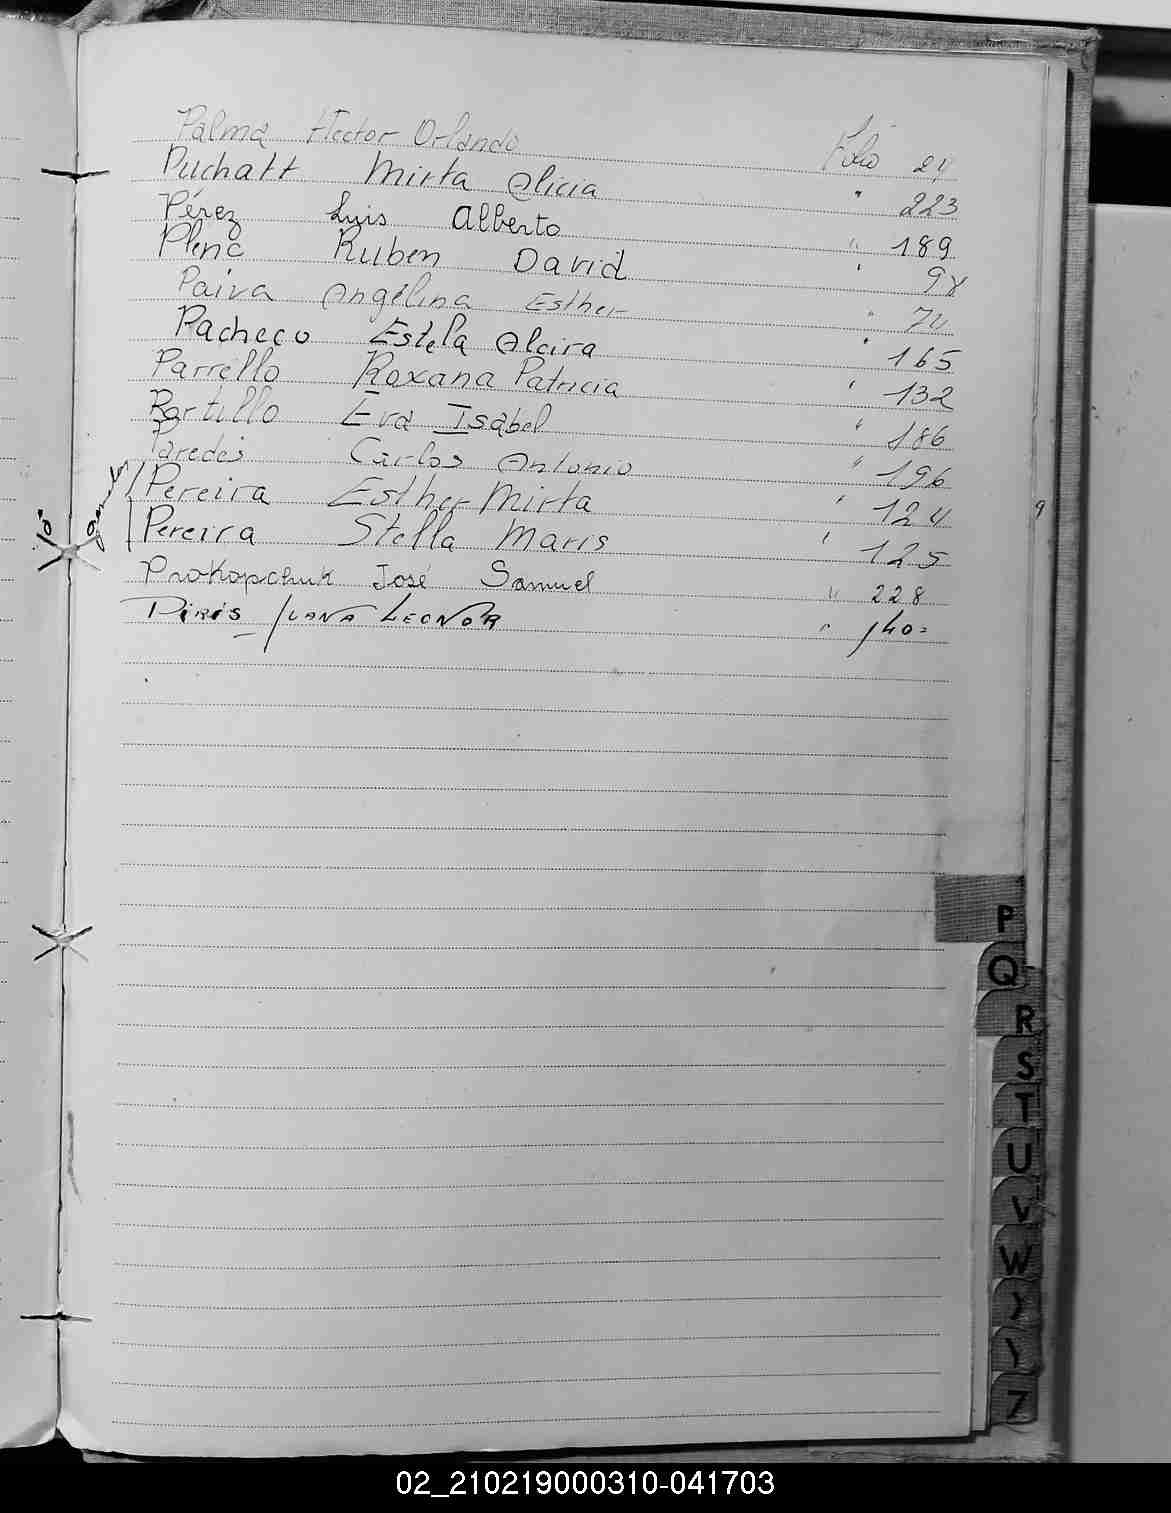 Palma Hector Orlando Folio 24
Puchatt Mirta Alicia " 223
Pérez Luis Alberto " 189
Ruben David "
Paiva Angélina Esther " 74
Pacheco Estela Alcira " 165
Parrello Roxana Patricia " 132
Portillo Eva Isabel " 186
Paredes Carlos Antonio " 196
Pereira Esther Mirta " 124
Pereira Stella Maris " 125
Prokopchuk José Samuel " 228
Piris Juana Leonor " 140=
P
Q
R
S
T
U
V
W
Y
Z
02_210219000310-041703